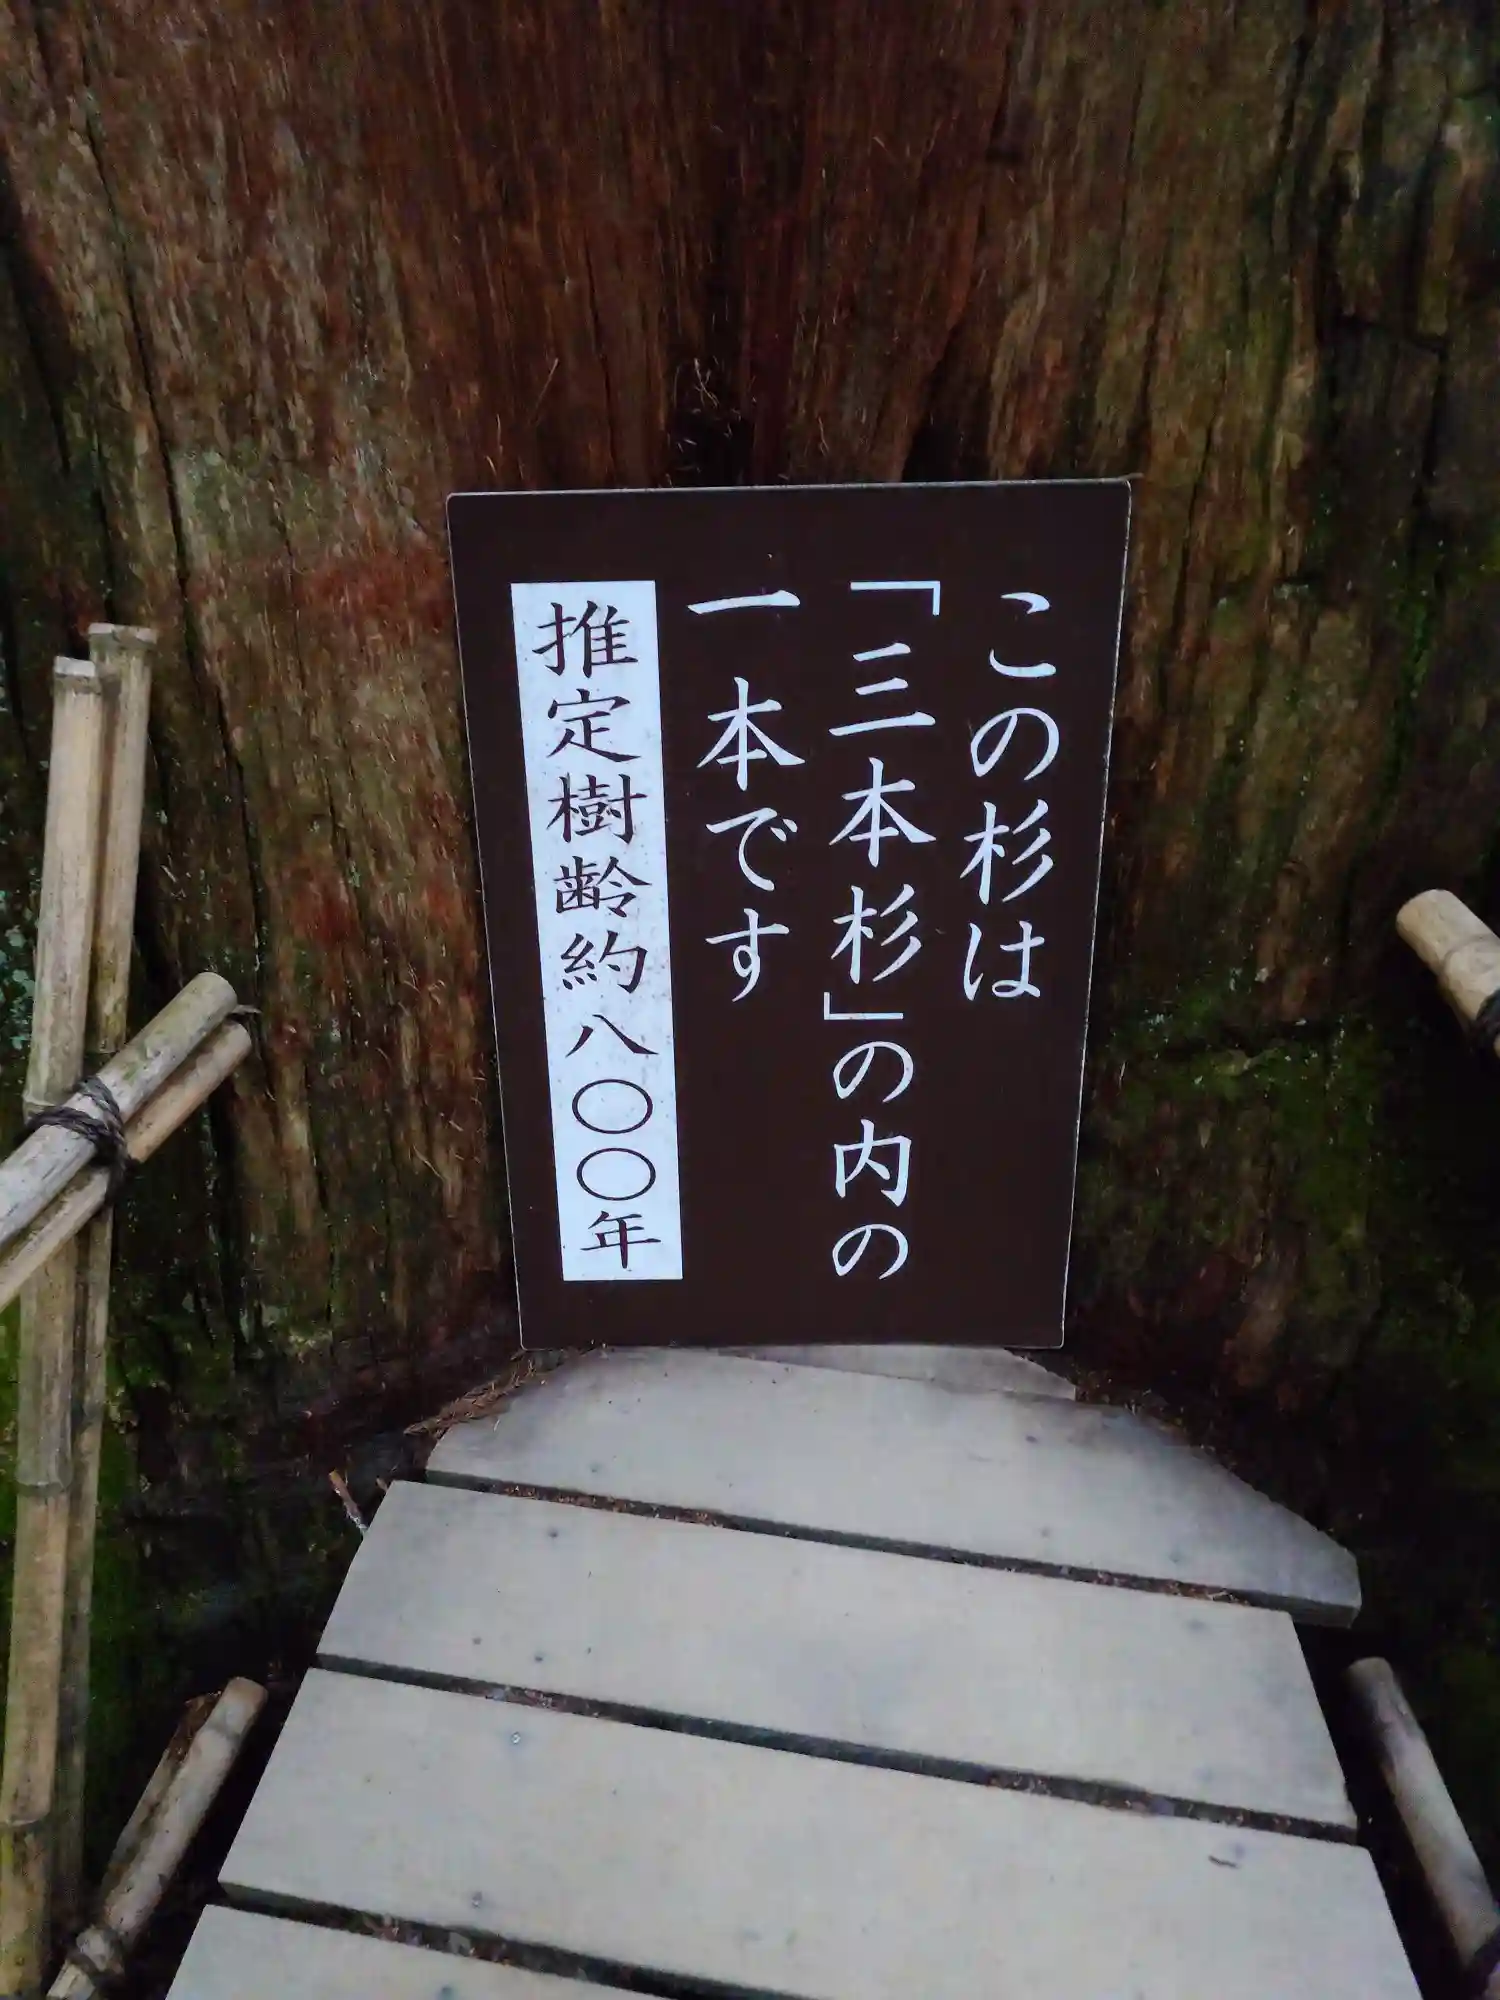 この杉は
「三本杉」の内の
一本です
推定樹齢約八〇〇年